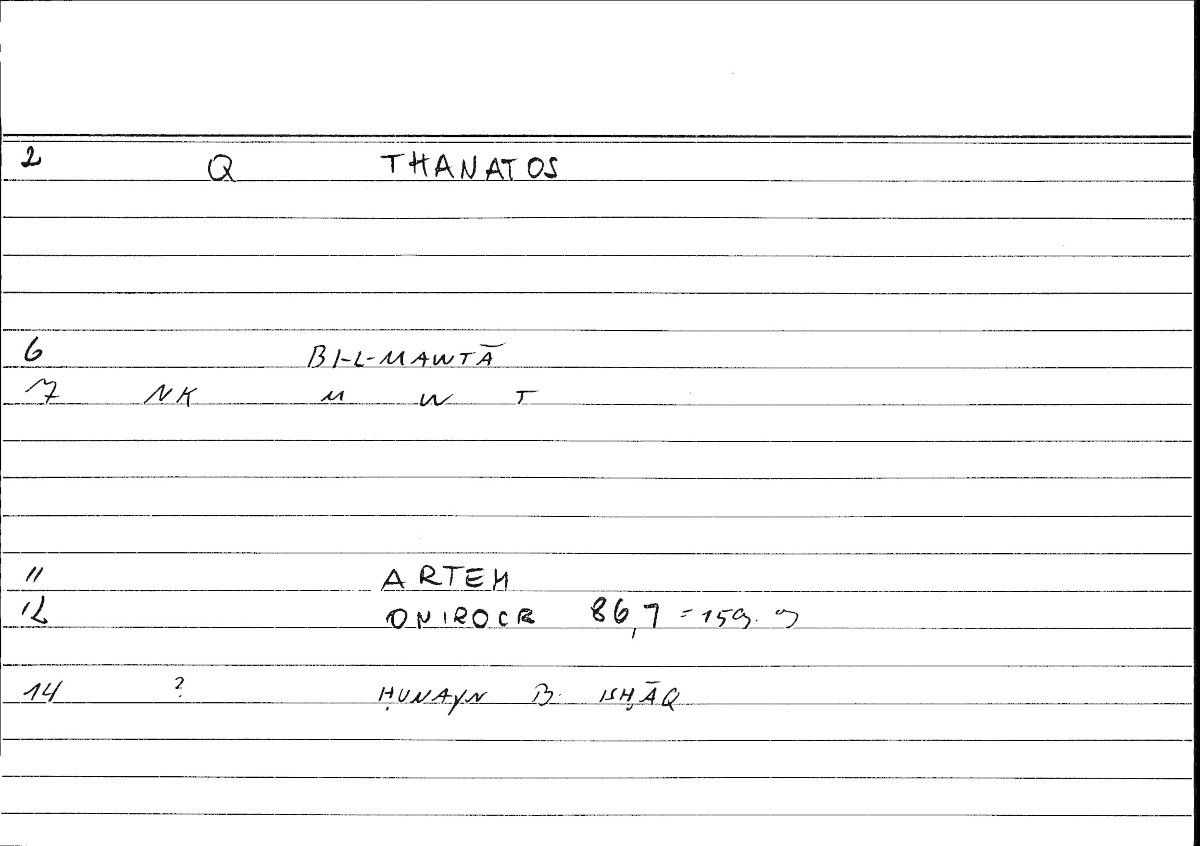 2 Q THANATOS
6 BI-L-MAWTĀ
7 NK M W T
11 ARTEM
12 ONIROCR 86,7 = 159. 9
14 ? ḤUNAYN B. ISḤĀQ